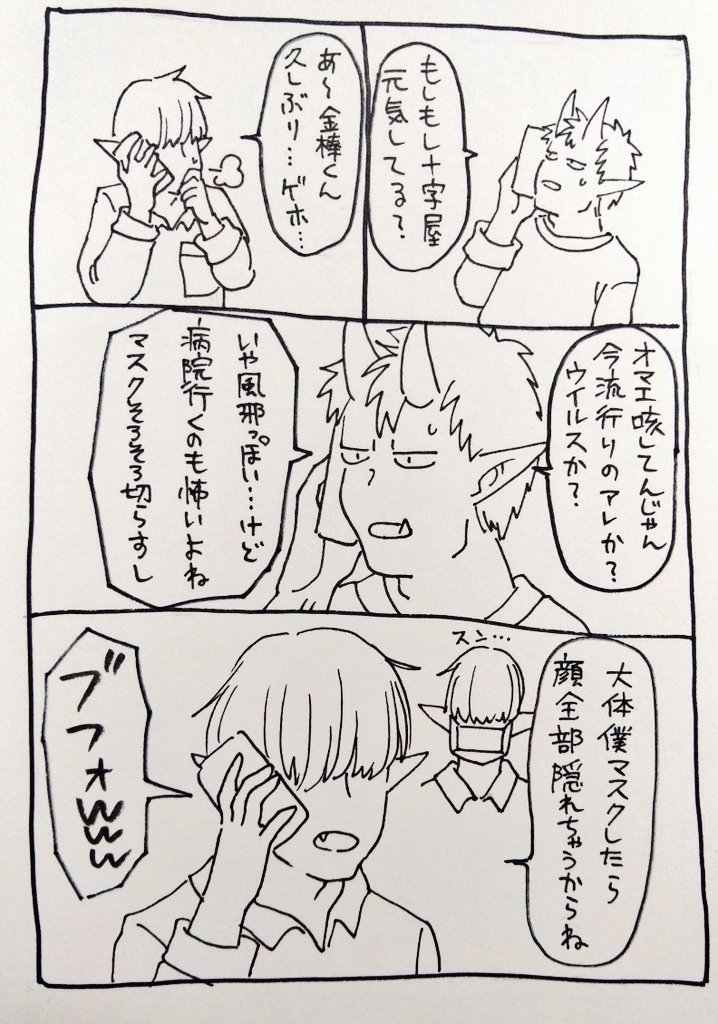 もしもし十字屋
元気してる?
あ〜金棒くん
久しぶり…ゲホ…
オマエ咳してんじゃん
今流行りのアレか?
ウイルスか?
いや風邪っぽい…けど
病院行くのも怖いよね
マスクそろそろ切らすし
大体僕マスクしたら
顔全部隠れちゃうからね
スン…
ブフォwww